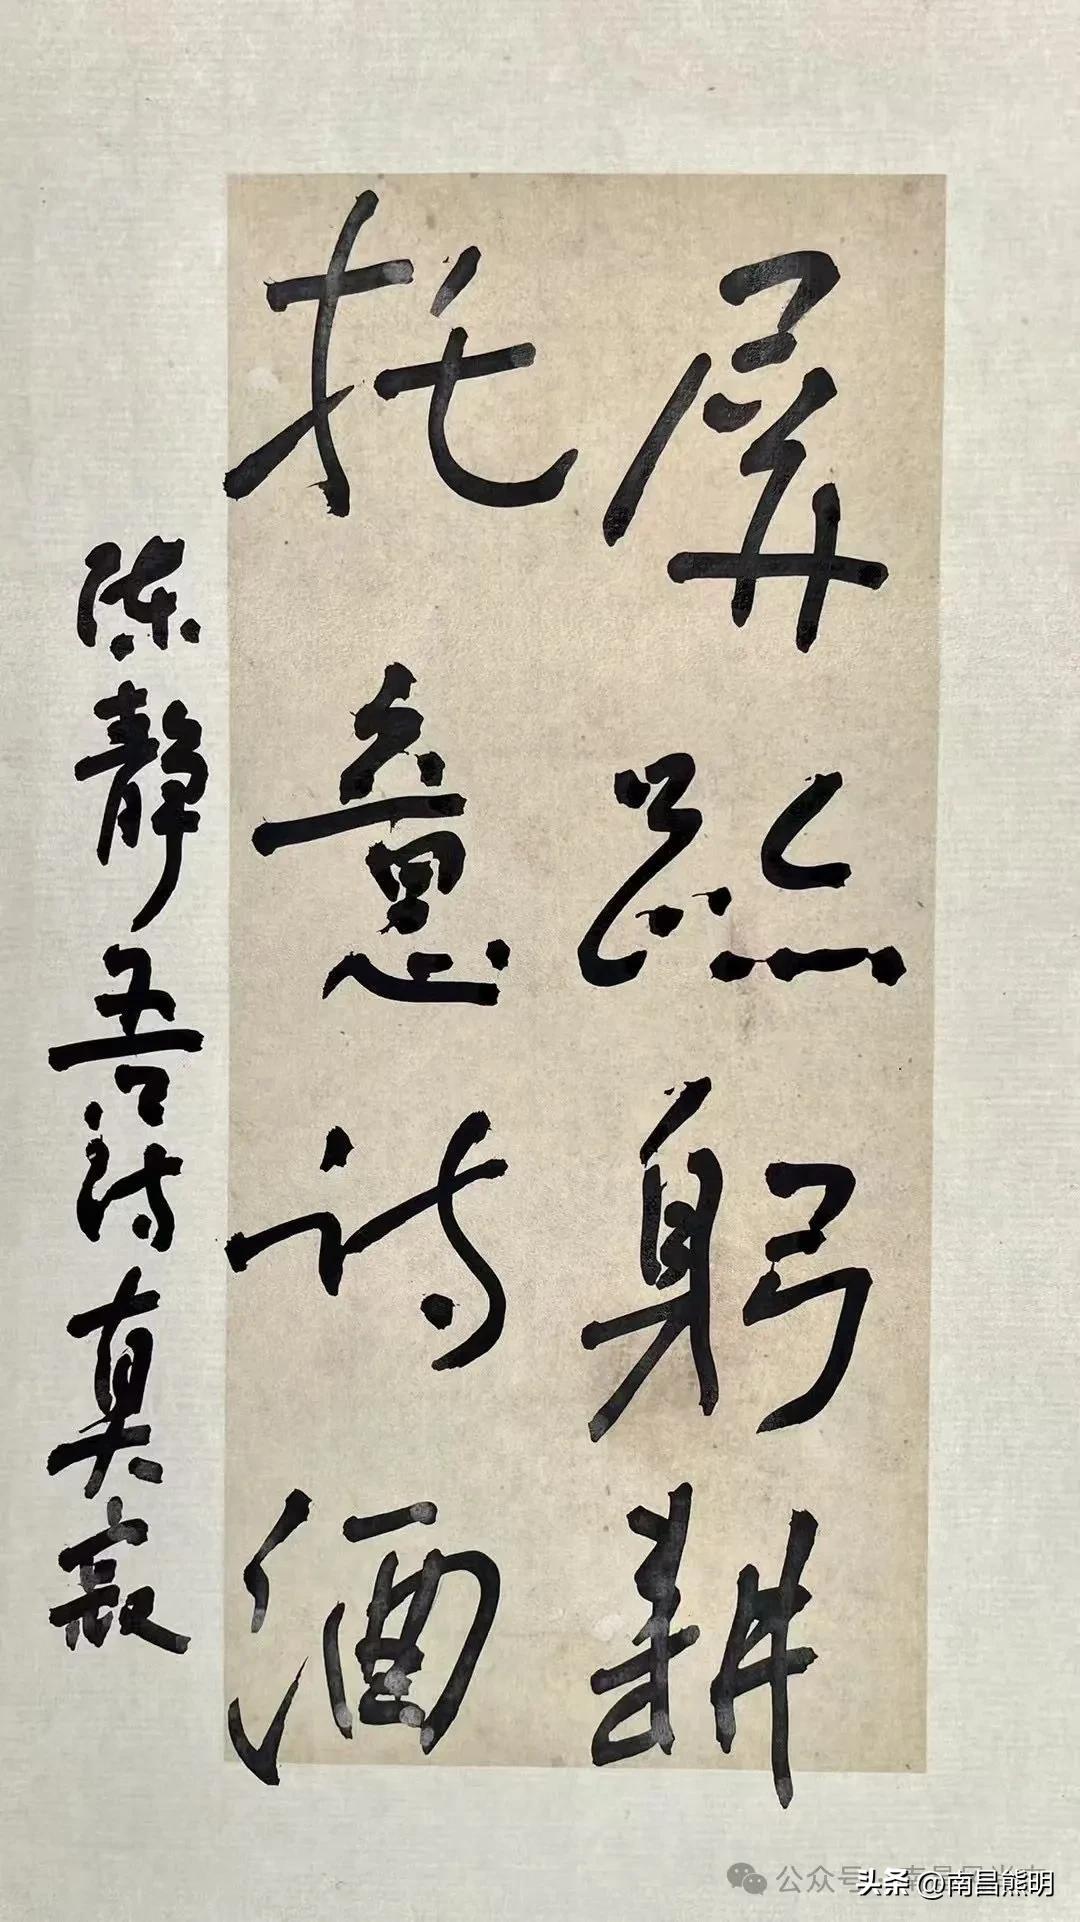 屏跡躬耕
托意诗酒
陈静吾诗真寂
公众号
头条 @南昌熊明